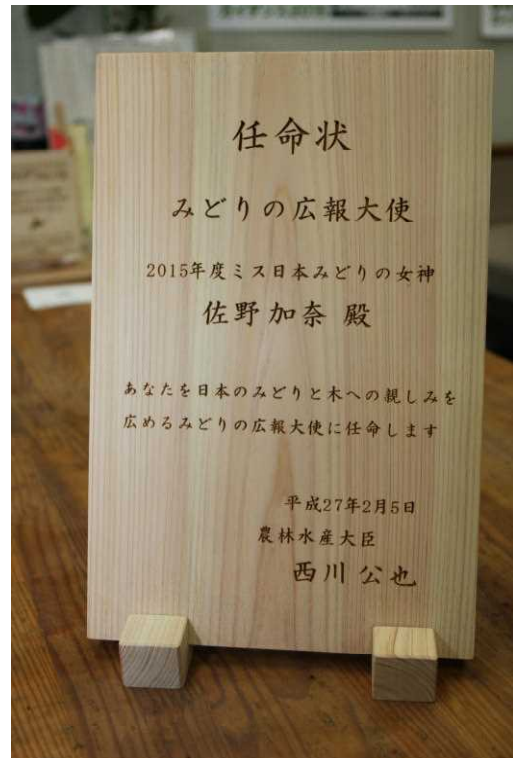 任命状
みどりの広報大使
2015年度ミス日本みどりの女神
佐野加奈 殿
あなたを日本のみどりと木への親しみを
広めるみどりの広報大使に任命します
平成27年2月5日
農林水産大臣
西川公也